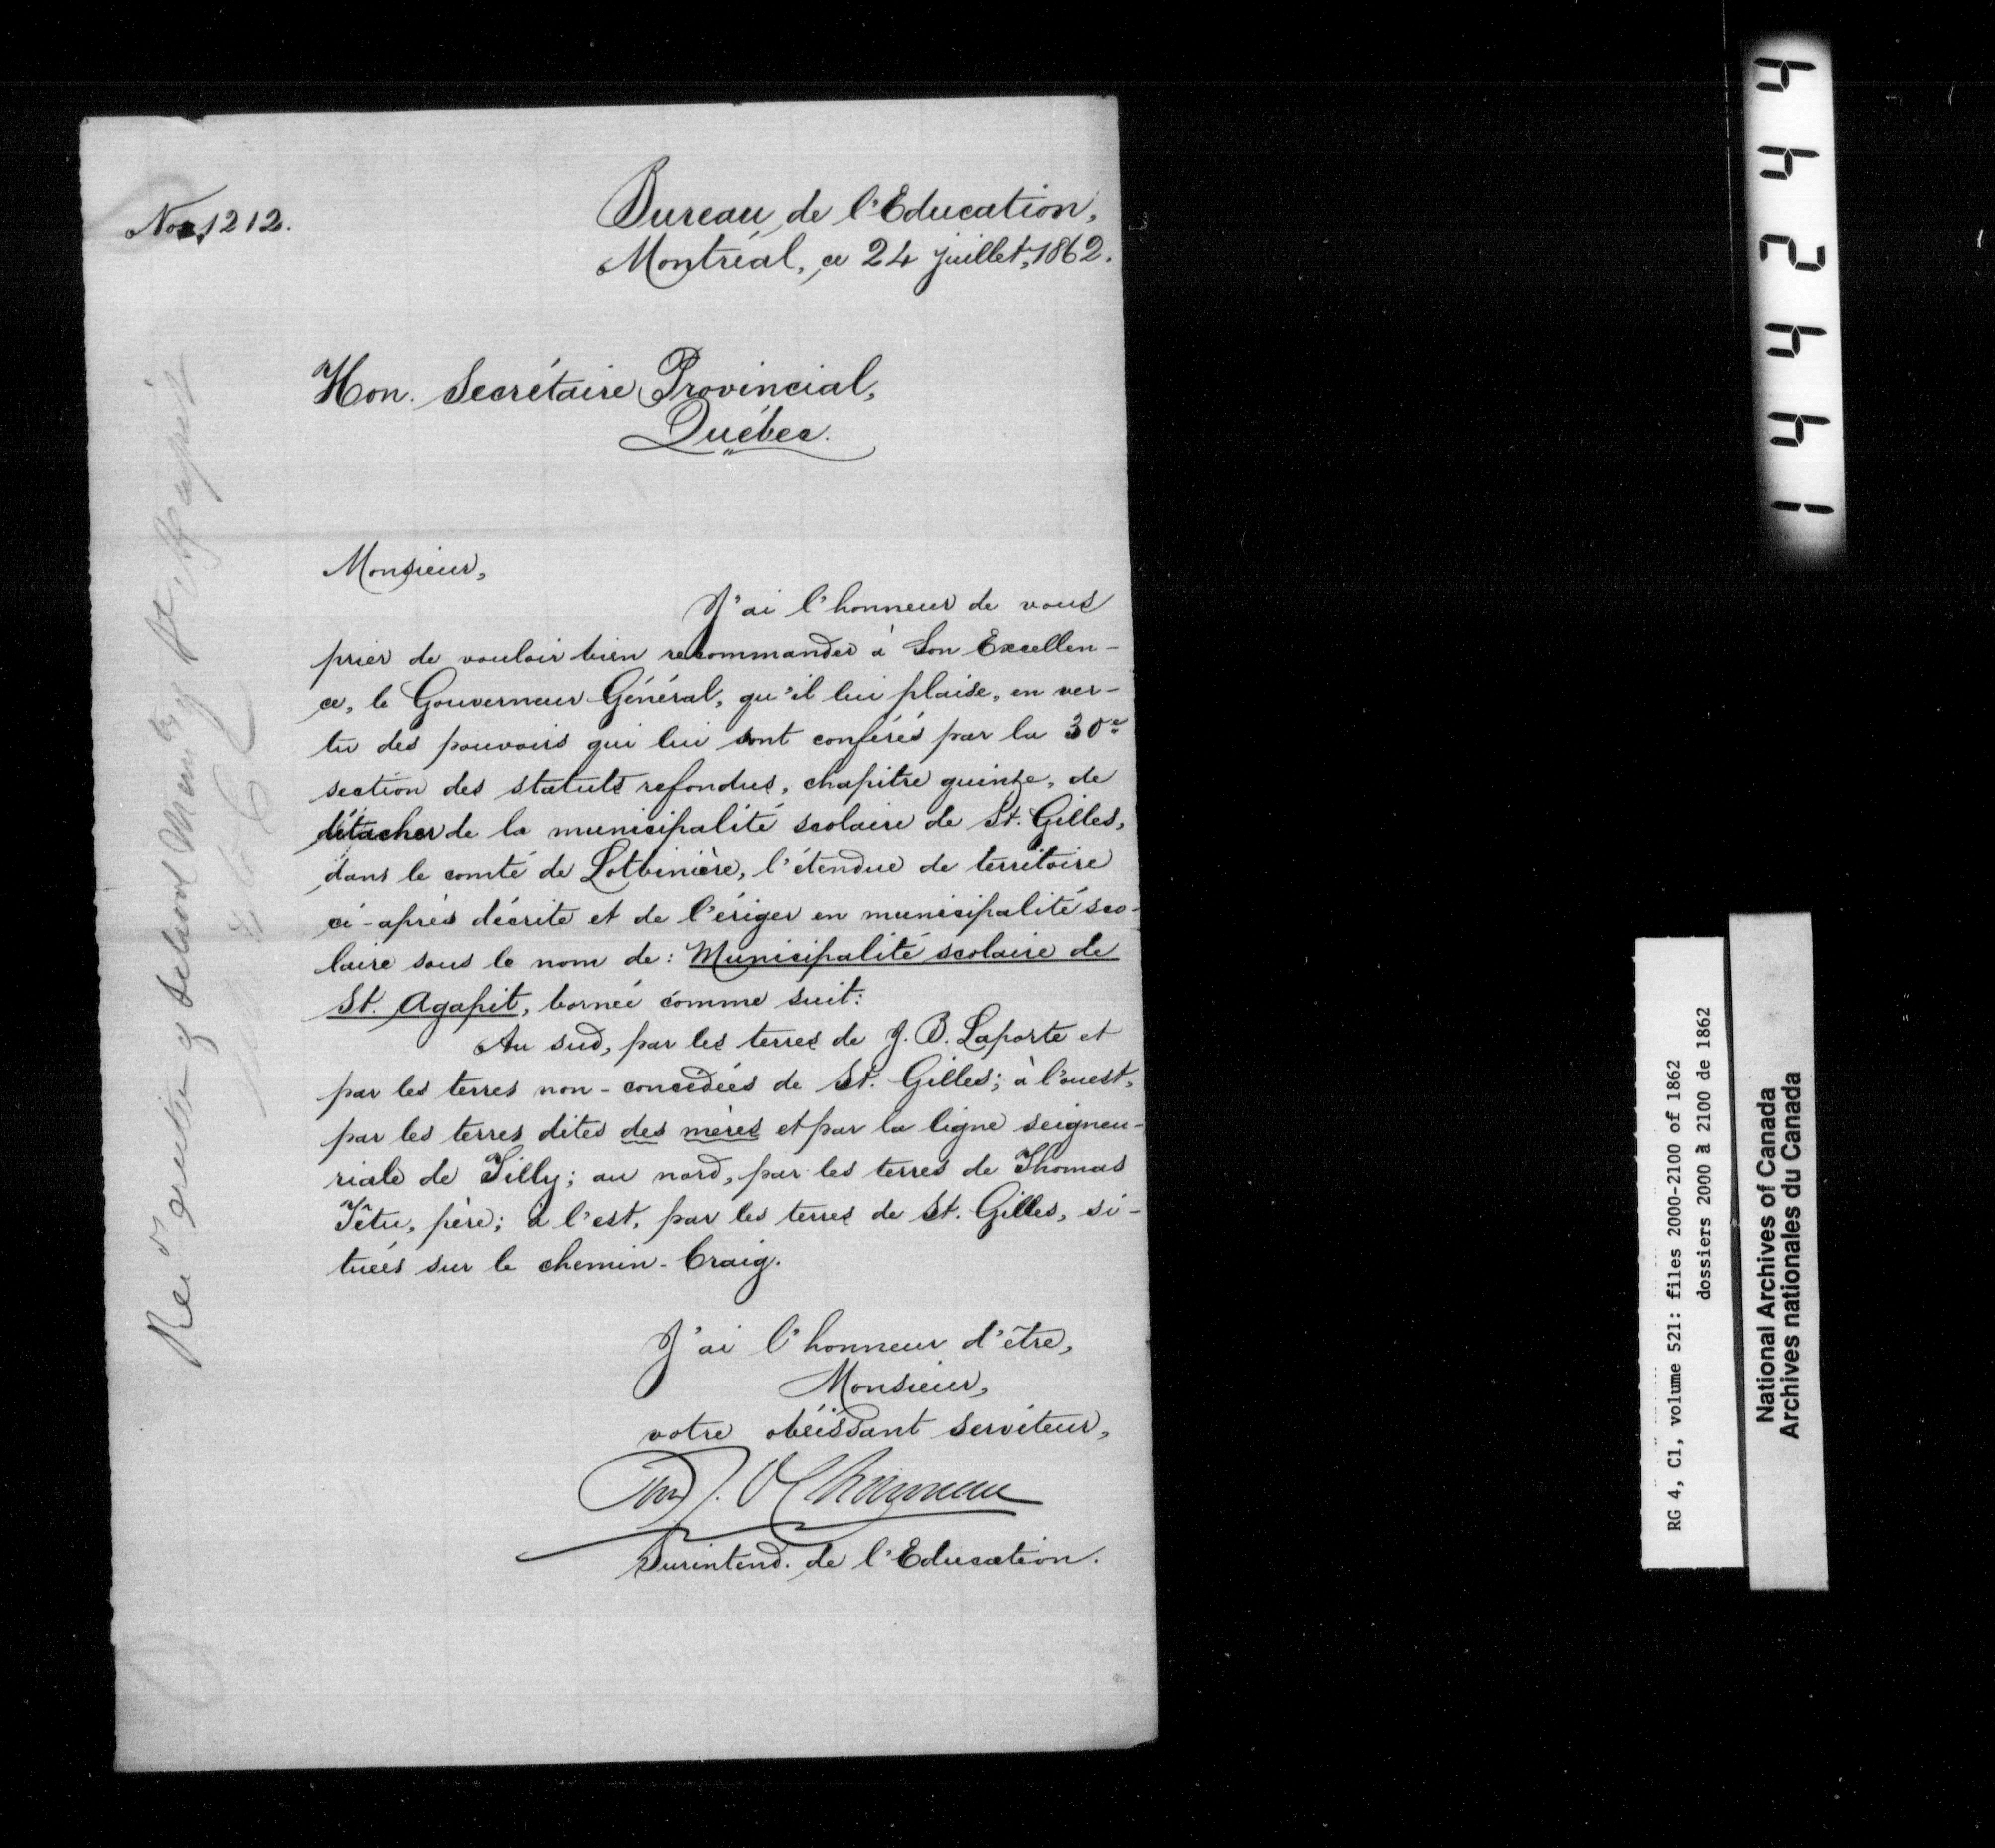 No. 1212.
Bureau de l'Education,
Montréal, ce 24 juillet, 1862.
Hon. Secrétaire Provincial,
Québec.
Monsieur,
J'ai l'honneur de vous
prier de vouloir bien recommander à Son Excellen-
ce, le Gouverneur Général, qu'il lui plaise, en ver-
tu des pouvoirs qui lui sont conférés par la 30e
section des statuts refondus, chapitre quinze, de
détacher de la municipalité scolaire de St. Gilles,
dans le comté de Lotbinière, l'étendue de territoire
ci-après décrite et de l'ériger en municipalité sco-
laire sous le nom de: Municipalité scolaire de
St. Agapit, bornée comme suit:
Au sud, par les terres de J. B. Laporte et
par les terres non-concédées de St. Gilles; à l'ouest,
par les terres dites des mères et par la ligne seigneu-
riale de Tilly; au nord, par les terres de Thomas
Têtu, père; à l'est, par les terres de St. Gilles, si-
tuées sur le chemin-Craig.
J'ai l'honneur d'être,
Monsieur,
votre obéissant serviteur,
Chauveau
Surintend. de l'Education.
School St Agapit
144244
RG 4, C1, volume 521: files 2000-2100 of 1862
dossiers 2000 à 2100 de 1862
National Archives of Canada
Archives nationales du Canada